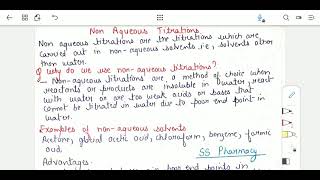 Non Aqueous Titrations
Non aqueous titrations are the titrations which are
carried out in non-aqueous solvents i.e, solvents other
then water.
Q Why do we use non-aqueous titrations?
Non-aqueous titrations are, a method of choice when
reactants or products are insoluble in water, react
with water or are too weak acids or bases that
cannot be titrated in water due to poor end point in
water.
Examples of non-aqueous solvents
Acetone, glacial acetic acid, chloroform, benzene, formic
acid.
SS Pharmacy
Advantages:
end points in